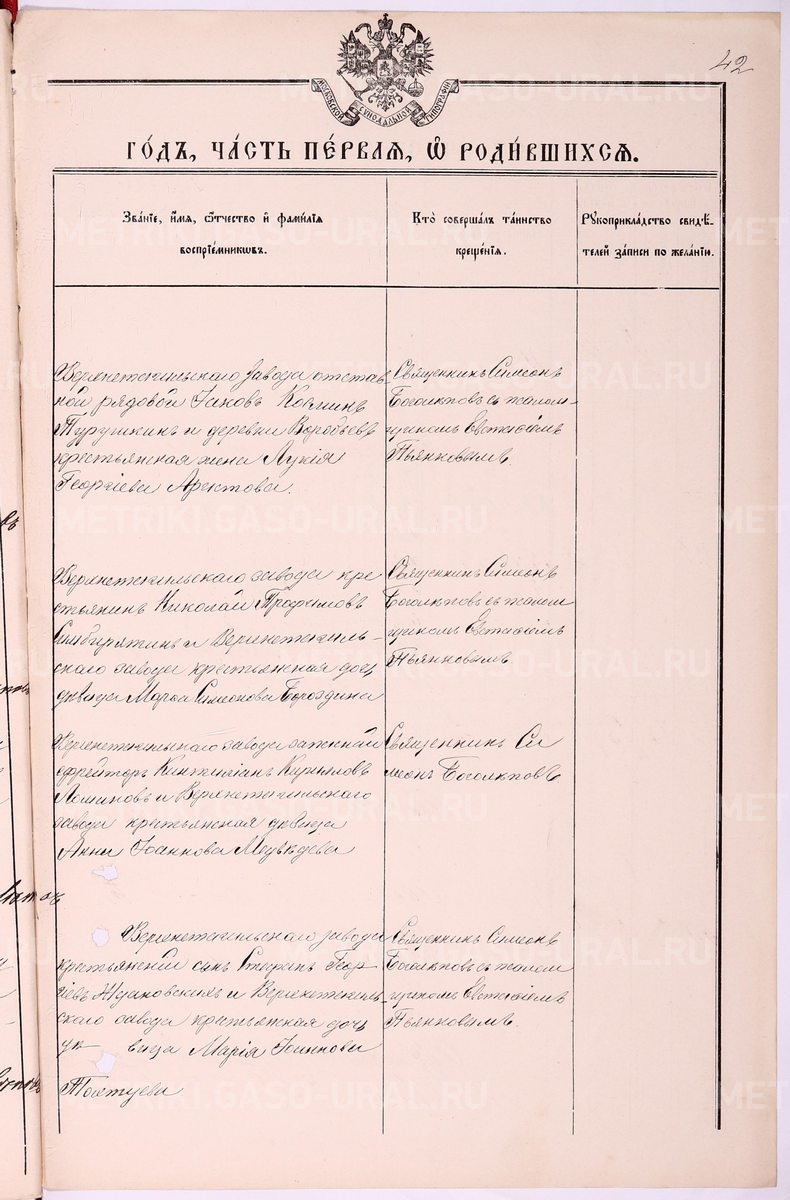 42
МОСКОВСКОЙ СѴНОДАЛЬНОЙ ТИПОГРАФІИ
ГО́ДЪ, ЧА́СТЬ ПЕ́РВАѦ, Ѡ҆ РОДИ́ВШИХСѦ.
Зва́нїе, и҆́мѧ, ѻ҆́тчество и҆ фами́лїѧ
воспрїе́мникѡвъ.
Кто̀ соверша́лъ та́инство
креще́нїѧ.
Рꙋкоприкла́дство свидѣ́-
телей за́писи по жела́нїю.
Верхнетагильскаго завода отстав-
ной рядовой Іаковъ Космин
и деревни Воробьевой
крестьянская жена Лукія
Георгіева
Священникъ Симеонъ
Боголѣповъ съ псалом-
щикомъ Евгеніемъ
Пьянковымъ.
Верхнетагильскаго завода кре
стьянинъ Николай Трофимовъ
Симбирятинъ и Верхнетагиль-
скаго завода крестьянская дочь
дѣвица Марѳа Симеонова Бороздина
Священникъ Симеонъ
Боголѣповъ съ псалом
щикомъ Евгеніемъ
Пьянковымъ
Верхнетагильскаго завода запасный
ефрейторъ Кирилловъ
и Верхнетагильскаго
завода крестьянская дѣвица
Анна Іоаннова Медвѣдева
Священникъ Си
меонъ Боголѣповъ
Верхнетагильскаго завода
крестьянскій сынъ Стефанъ Геор-
гіевъ Ждановскихъ и Верхнетагиль-
скаго завода крестьянская дочь
дѣ вица Марія Іоаннова
Священникъ Симеонъ
Боголѣповъ съ псалом
щикомъ Евгеніемъ
Пьянковымъ.
METRIKI.GASO-URAL.RU